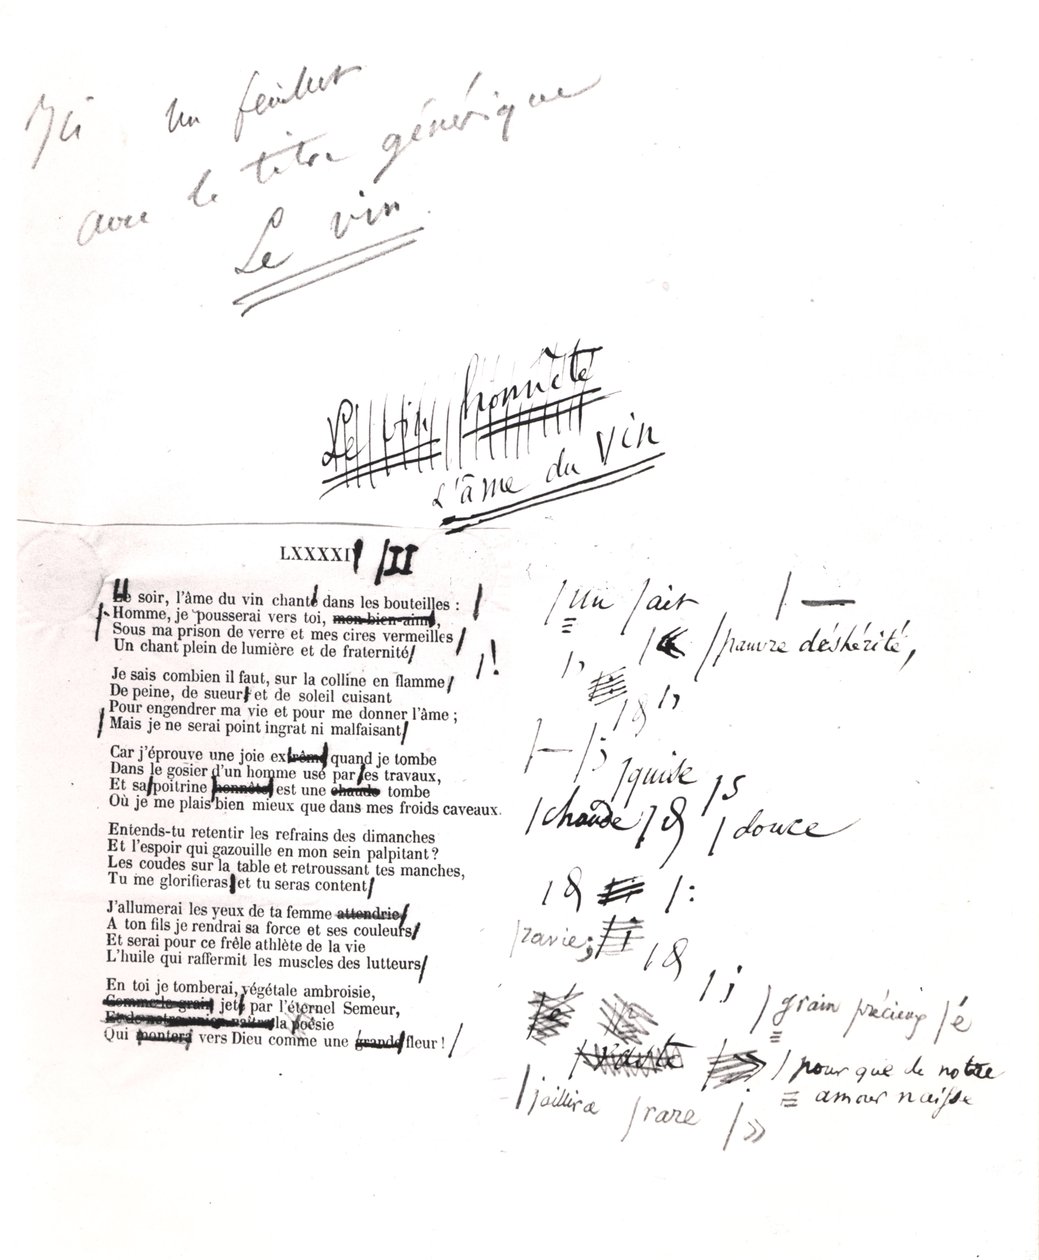 Ici un feuillet
avec le titre générique
Le vin.
Le vin honnête
L'âme du Vin
LXXXXI /II
Le soir, l'âme du vin chante dans les bouteilles : /Un /ait /—
Homme, je pousserai vers toi, mon bien-aimé, /« /pauvre déshérité,
Sous ma prison de verre et mes cires vermeilles /,
Un chant plein de lumière et de fraternité /!
Je sais combien il faut, sur la colline en flamme /,
De peine, de sueur et de soleil cuisant
Pour engendrer ma vie et pour me donner l'âme ;
Mais je ne serai point ingrat ni malfaisant /— /;
Car j'éprouve une joie extrême quand je tombe
Dans le gosier d'un homme usé par les travaux, /s
Et sa poitrine honnête est une chaude tombe /chaude /douce
Où je me plais bien mieux que dans mes froids caveaux.
Entends-tu retentir les refrains des dimanches
Et l'espoir qui gazouille en mon sein palpitant ?
Les coudes sur la table et retroussant tes manches,
Tu me glorifieras et tu seras content /:
J'allumerai les yeux de ta femme attendrie /ravie;
A ton fils je rendrai sa force et ses couleurs
Et serai pour ce frêle athlète de la vie
L'huile qui raffermit les muscles des lutteurs /;
En toi je tomberai, végétale ambroisie,
Comme le grain jeté par l'éternel Semeur, /grain précieux /é
Et de notre union naîtra la poésie /pour que de notre
amour naisse
Qui montera vers Dieu comme une grande fleur ! /jaillira /rare /»